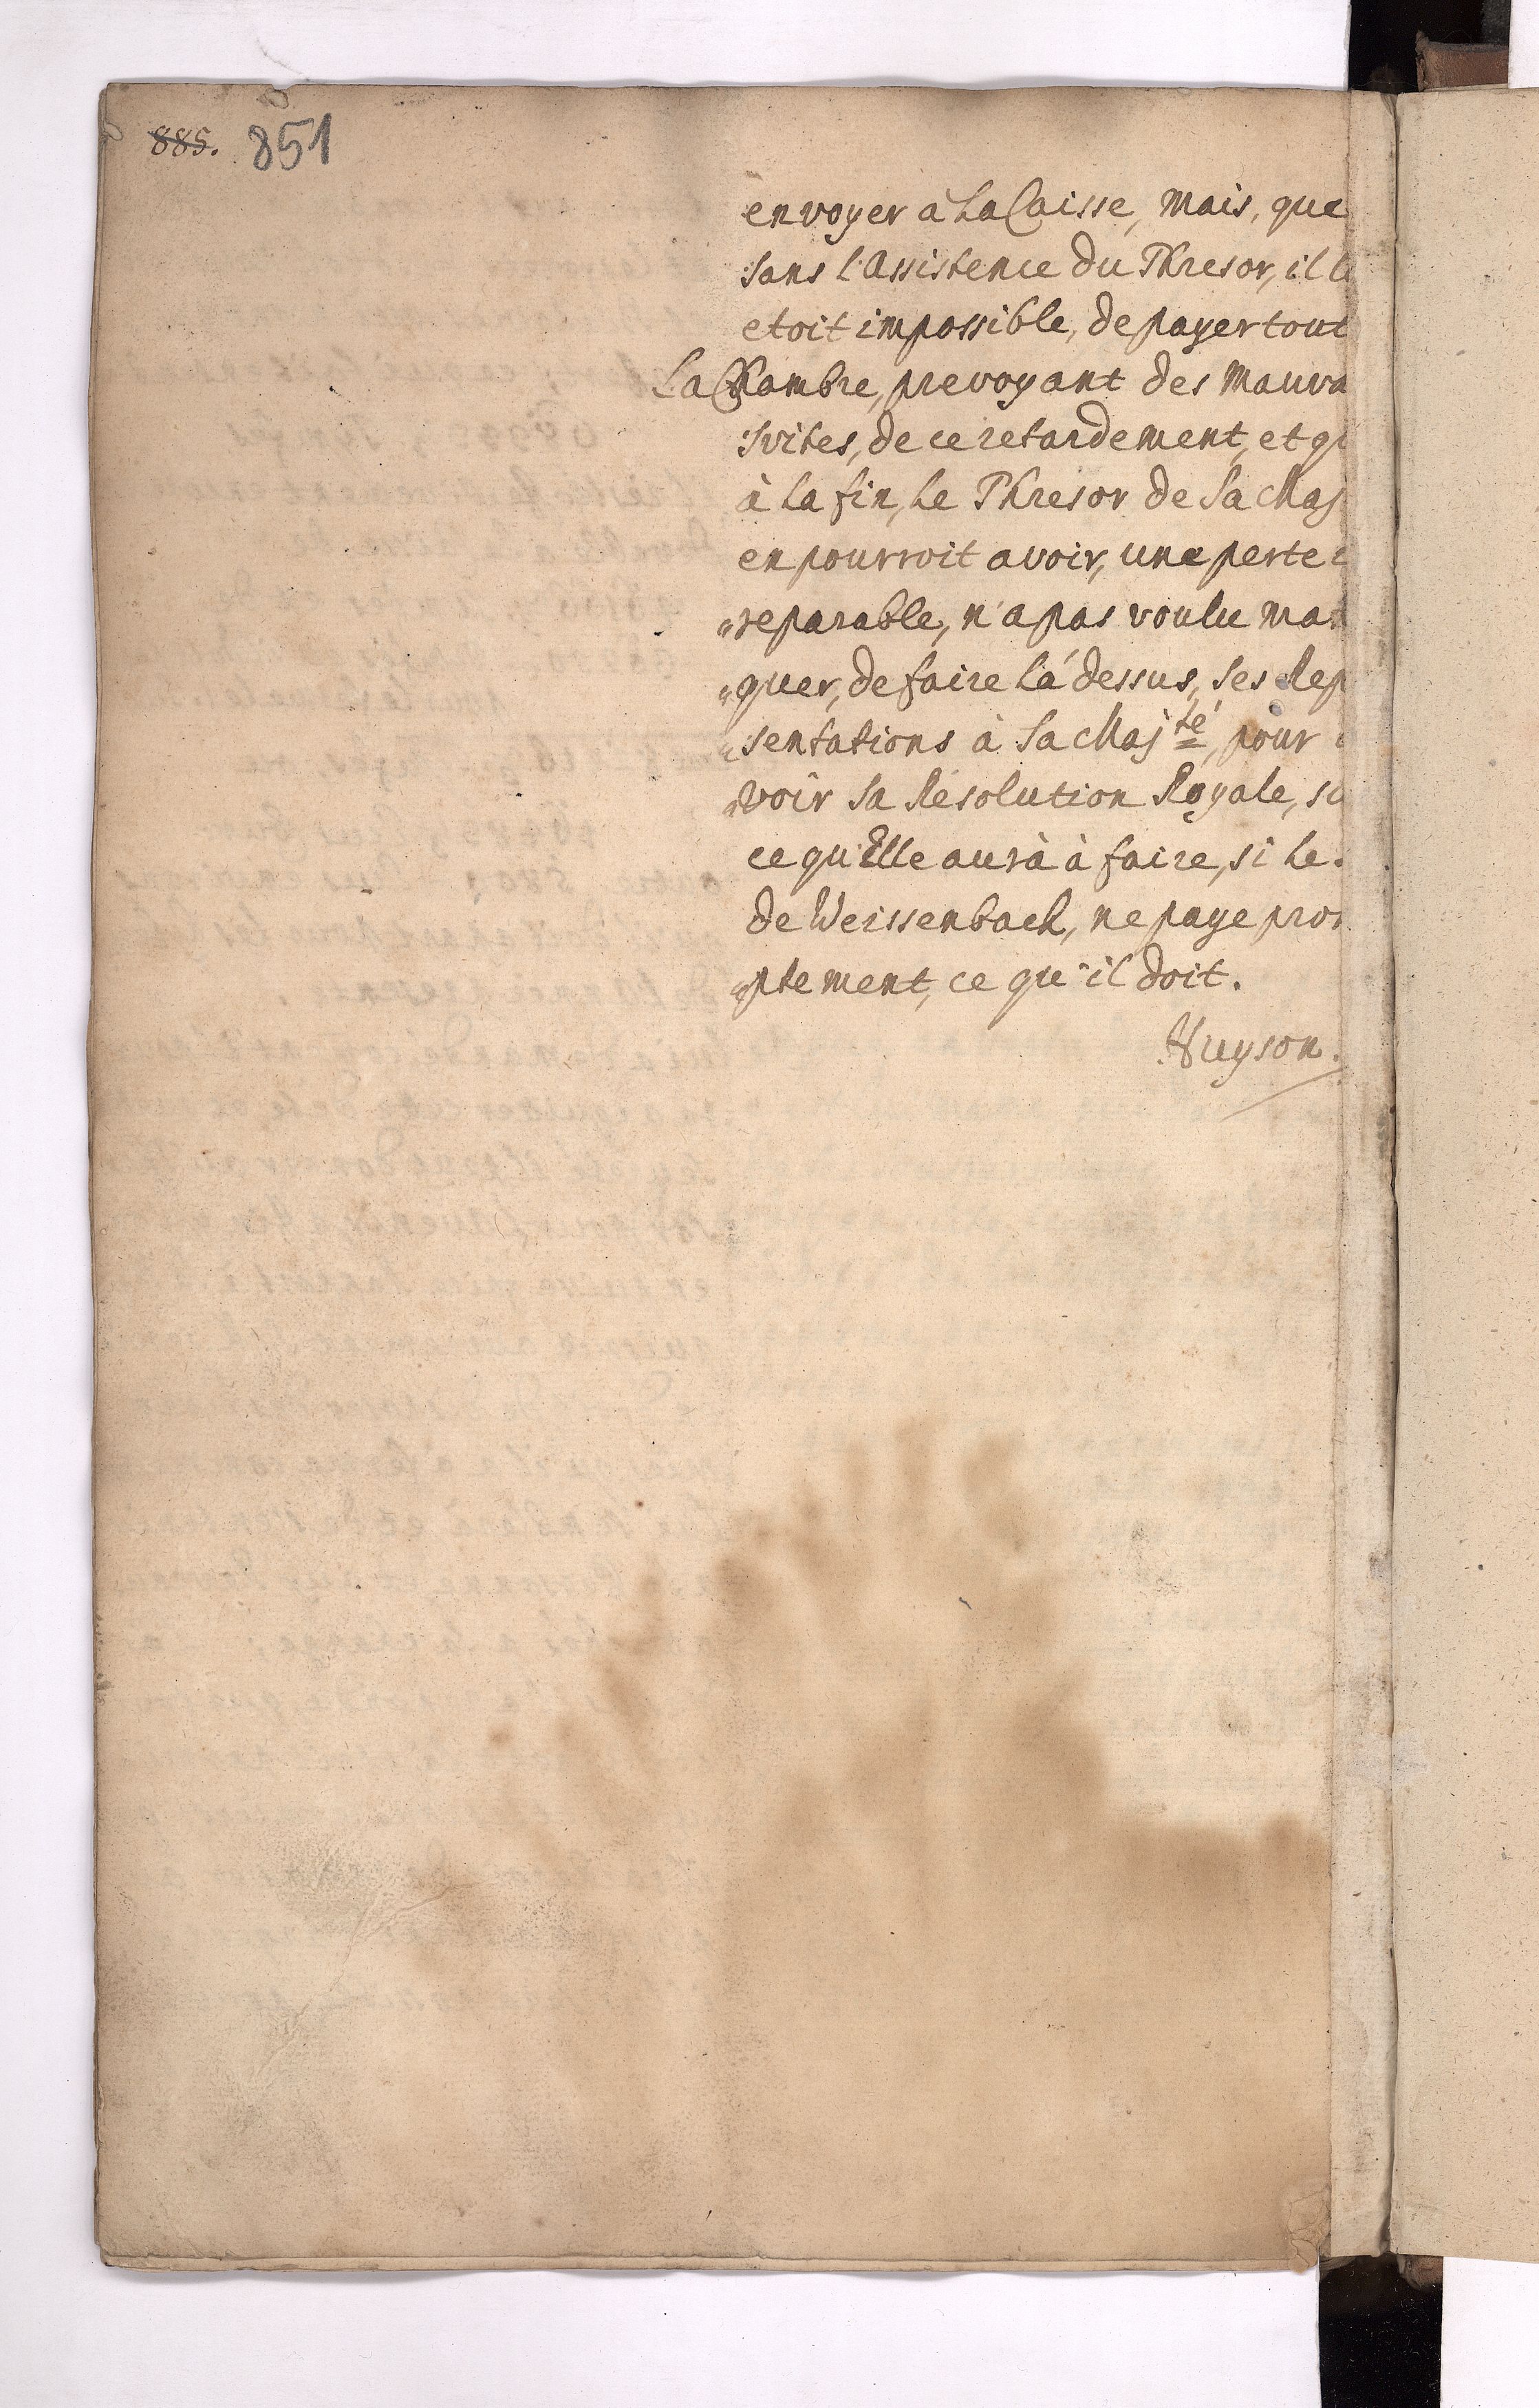 885. 851
envoyer à la Caisse, mais, que
sans l'Assistence du Thresor, il
etoit impossible, de payer tout
La Chambre, prevoyant des mauva
suites, de ce retardement, et qu
à la fin, le Thresor de Sa Maj
en pourroit avoir, une perte
"reparable, n'a pas voulu man
"quer, de faire là dessus, ses Rep
"sentations à Sa Majté, pour
"voir sa Résolution Royale, su
ce qu'Elle aurà à faire, si le
de Weissenbach, ne paye pro
"ptement, ce qu'il doit.
Huyson.